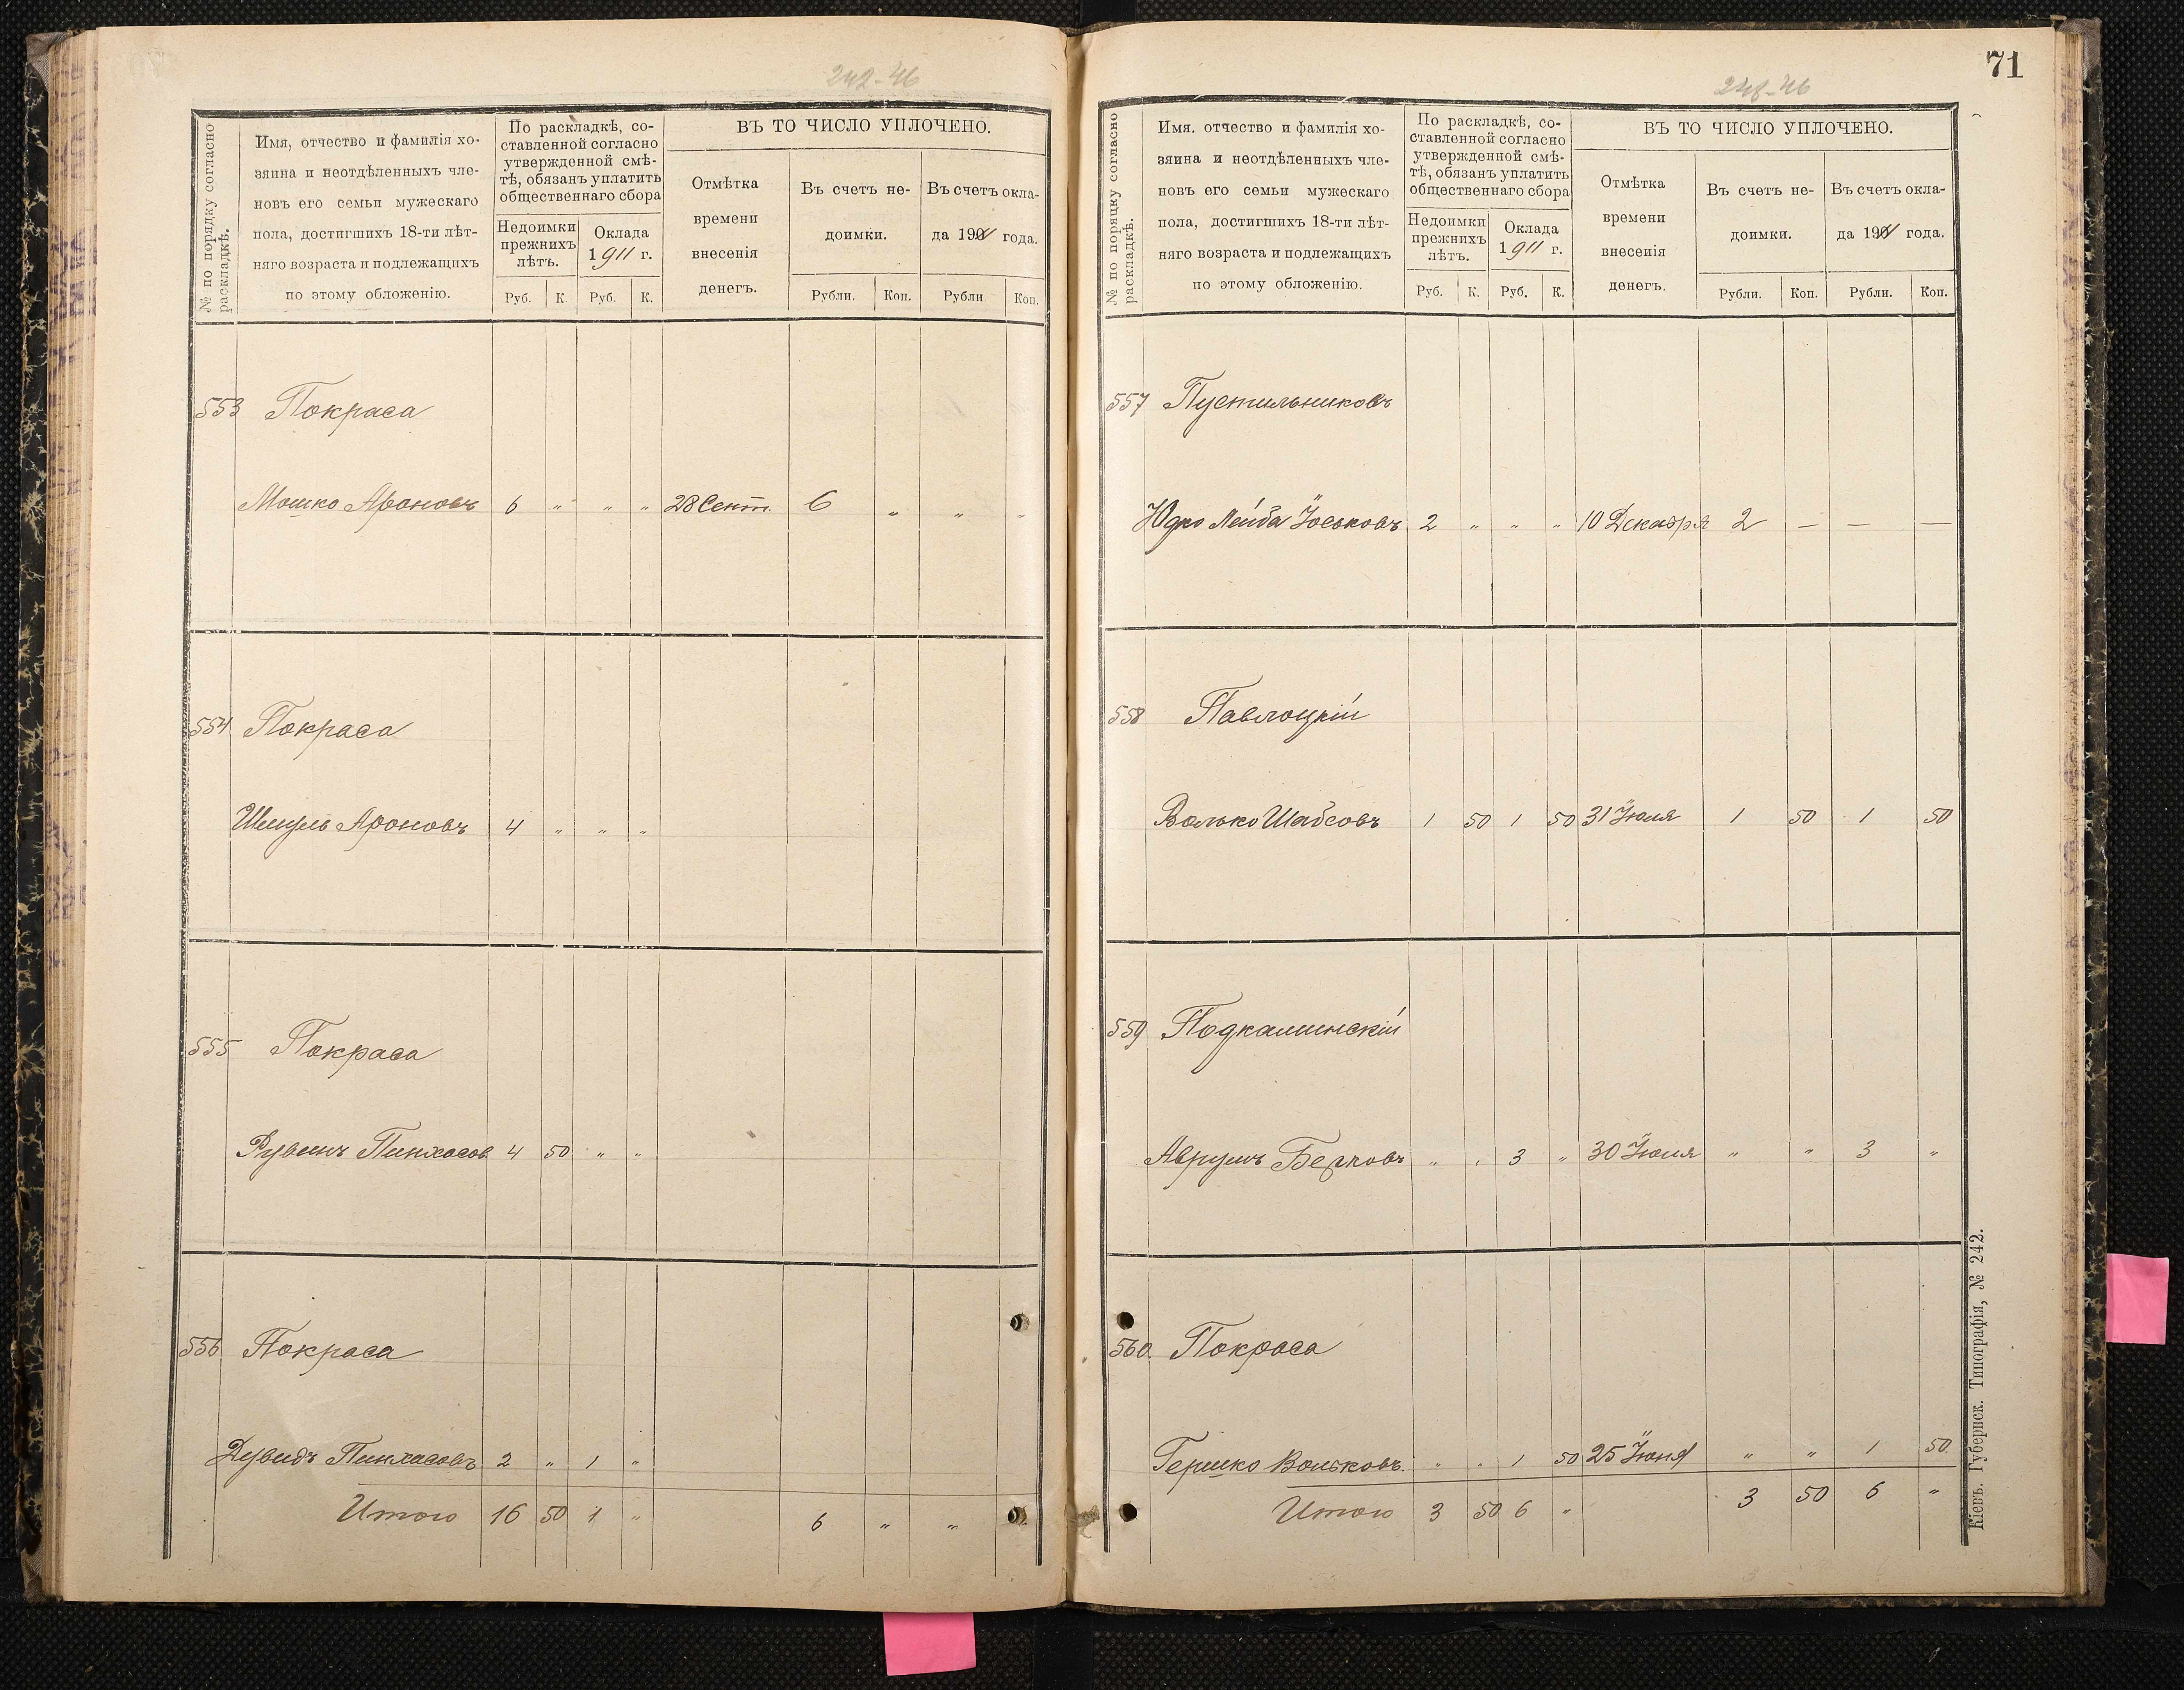 242-46
№ по порядку согласно раскладкѣ.
Имя, отчество и фамилія хо-
зяина и неотдѣленныхъ чле-
новъ его семьи мужескаго
пола, достигшихъ 18-ти лѣт-
няго возраста и подлежащихъ
по этому обложенію.
По раскладкѣ, со-
ставленной согласно
утвержденной смѣ-
тѣ, обязанъ уплатить
общественнаго сбора
Недоимки прежнихъ лѣтъ.
Оклада 1911 г.
Руб. К. Руб. К.
ВЪ ТО ЧИСЛО УПЛОЧЕНО.
Отмѣтка
времени
внесенія
денегъ.
Въ счетъ не-
доимки.
Въ счетъ окла-
да 1911 года.
Рубли. Коп. Рубли Коп.
553 Покраса
Мошко Ароновъ 6 " " " 28 Сент. 6 " " "
554 Покраса
Шмуль Ароновъ 4 " " "
555 Покраса
Рувинъ Пинхасов 4 50 " "
556 Покраса
Дувидъ Пинхасовъ 2 " 1 "
Итого 16 50 1 " 6 " "
71
248-46
№ по порядку согласно раскладкѣ.
Имя. отчество и фамилія хо-
зяина и неотдѣленныхъ чле-
новъ его семьи мужескаго
пола, достигшихъ 18-ти лѣт-
няго возраста и подлежащихъ
по этому обложенію.
По раскладкѣ, со-
ставленной согласно
утвержденной смѣ-
тѣ, обязанъ уплатить
общественнаго сбора
Недоимки прежнихъ лѣтъ.
Оклада 1911 г.
Руб. К. Руб. К.
ВЪ ТО ЧИСЛО УПЛОЧЕНО.
Отмѣтка
времени
внесенія
денегъ.
Въ счетъ не-
доимки.
Въ счетъ окла-
да 1911 года.
Рубли. Коп. Рубли. Коп.
557 Пустильниковъ
Юдко Лейба Іоськовъ 2 " " " 10 Декабря 2 — — —
558 Павлоцкій
Волько Шабсовъ 1 50 1 50 31 Іюля 1 50 1 50
559 Подкаминскій
Аврумъ Берковъ " " 3 " 30 Іюля " " 3 "
560. Покраса
Гершко Вольковъ. " " 1 50 25 Іюня " " 1 50
Итого 3 50 6 " 3 50 6 "
Кіевъ. Губернск. Типографія, № 242.